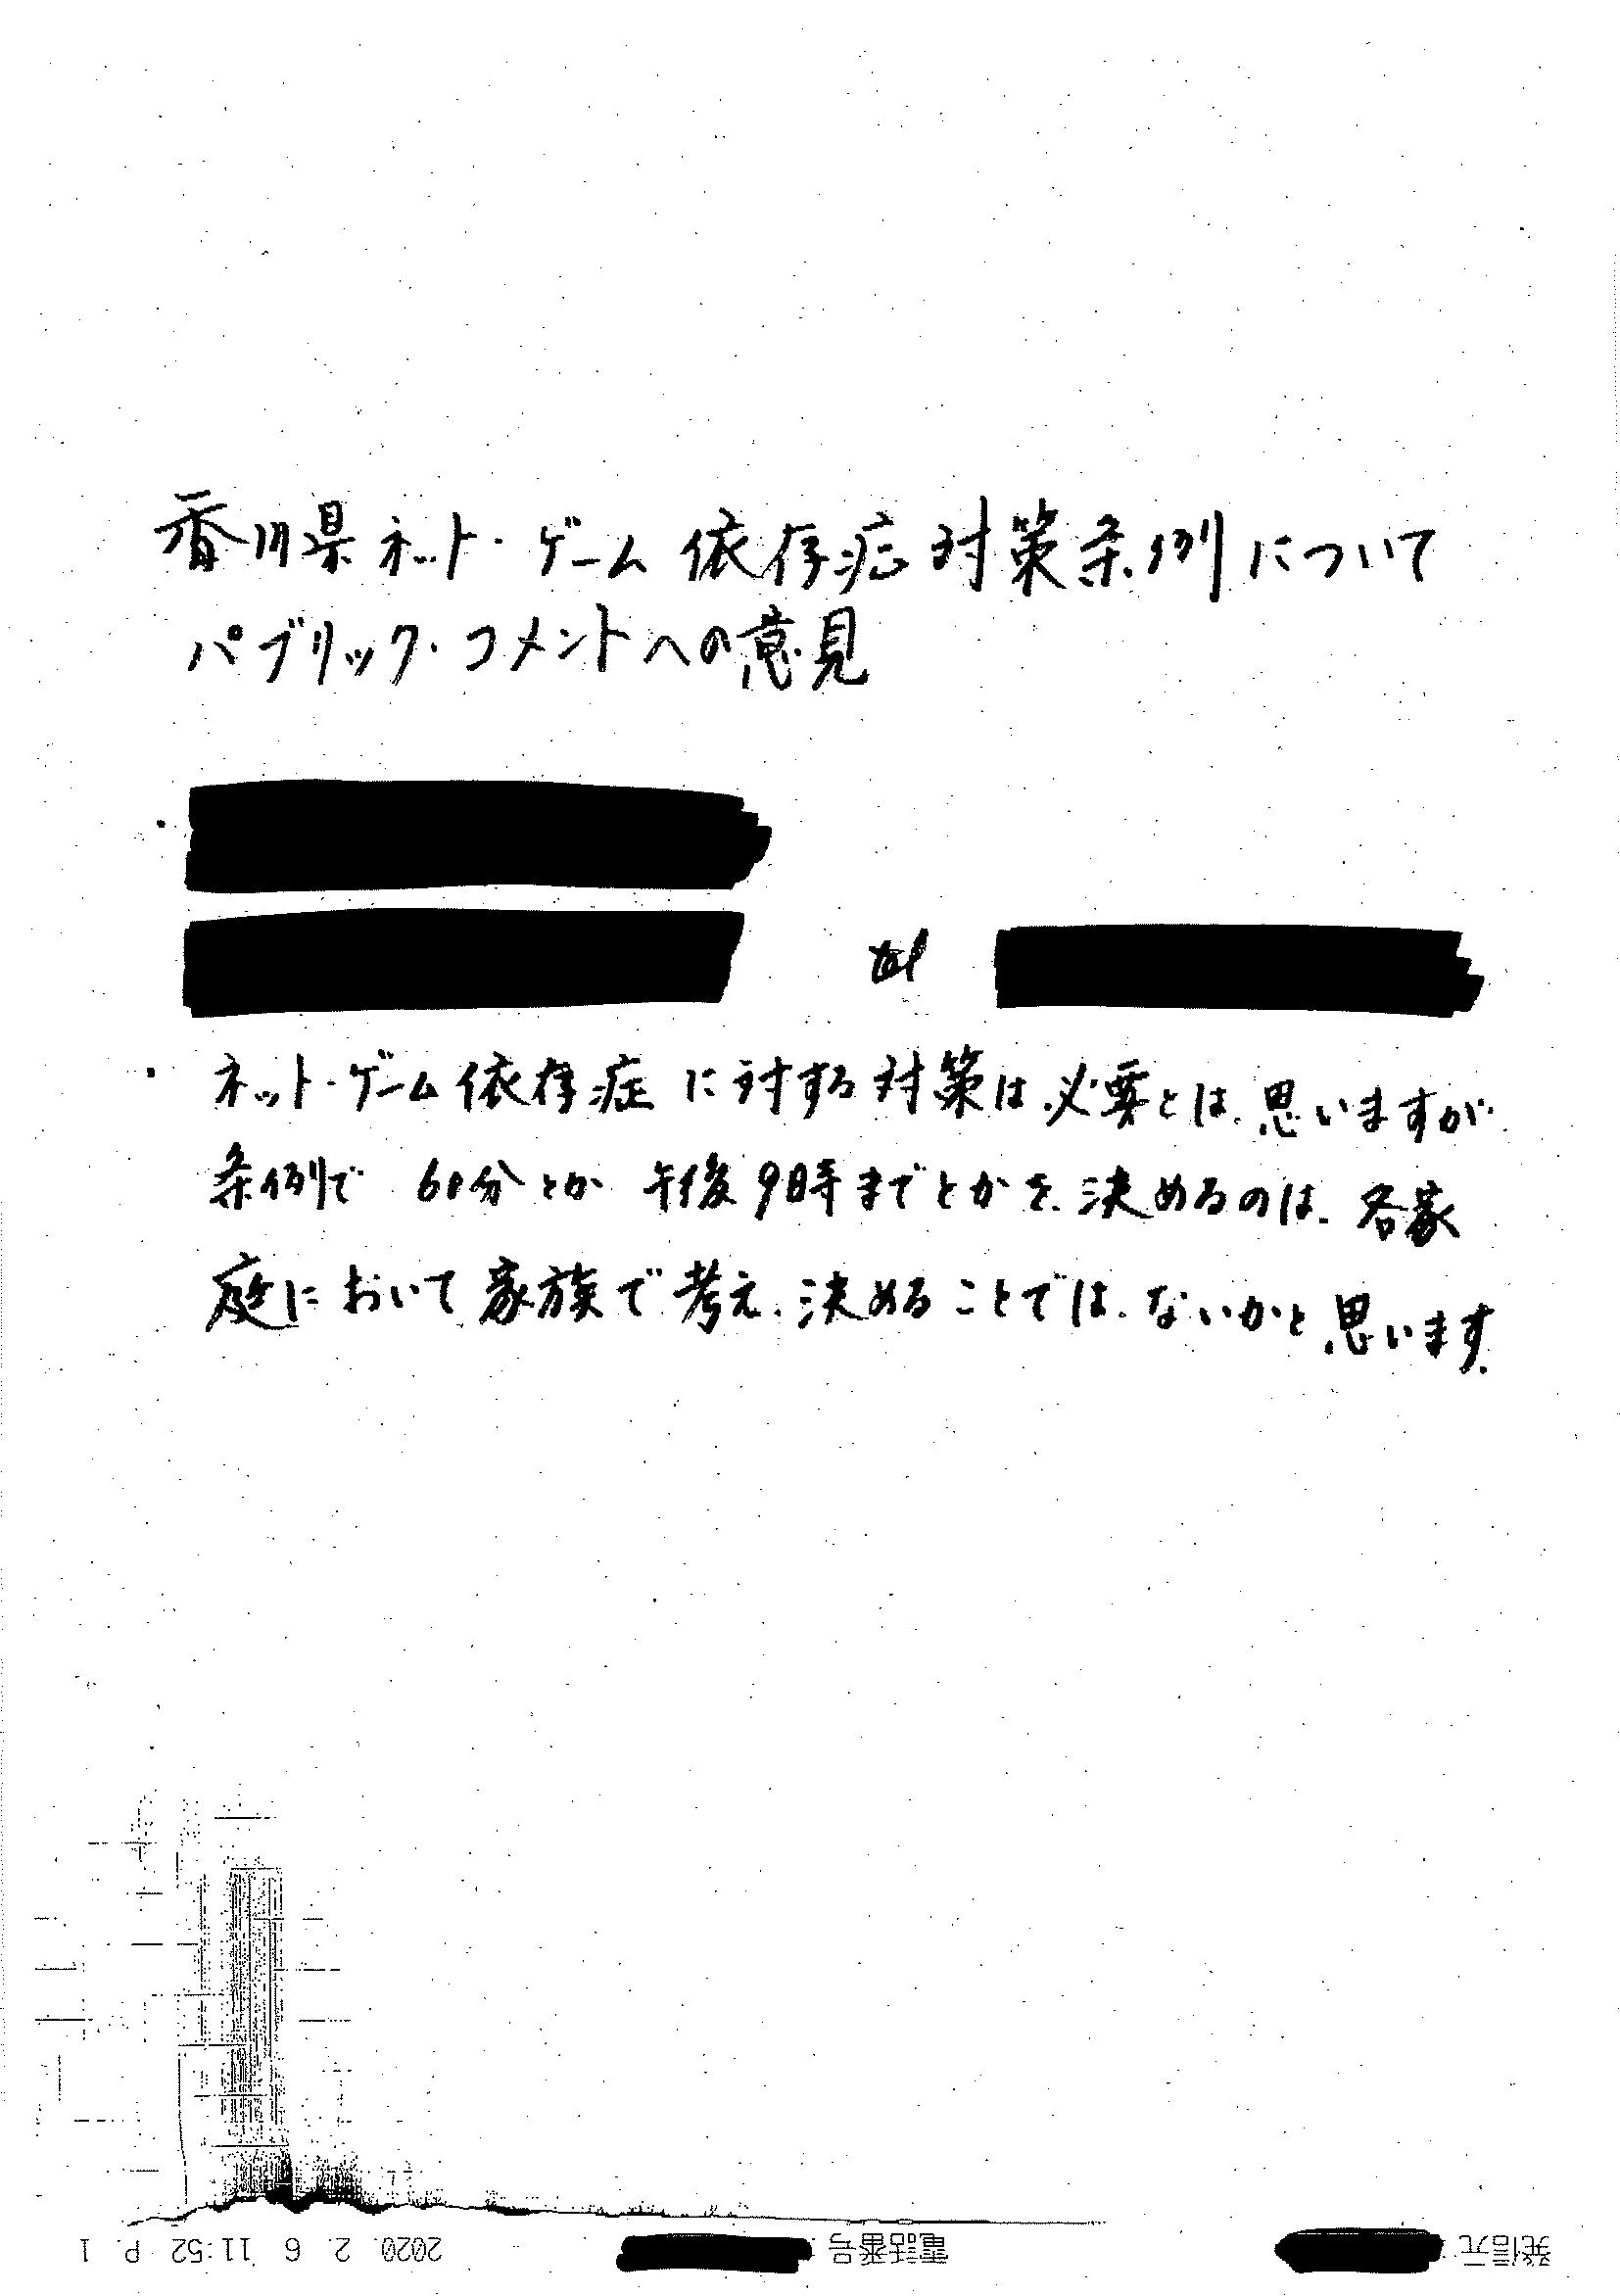 香川県ネット・ゲーム依存症対策条例について
パブリック・コメントへの意見
tel
・ネット・ゲーム依存症に対する対策は必要とは、思いますが
条例で 60分とか 午後9時までとかを、決めるのは、各家
庭において家族で考え、決めることでは、ないかと思います。
発信元: 電話番号: 2020. 2. 6 11:52 P. 1